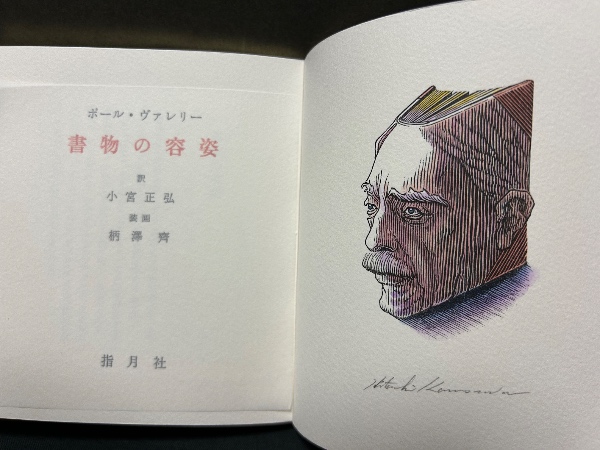 ポール・ヴァレリー
書物の容姿
訳
小宮正弘
装画
柄澤齊
指月社
Hitoshi Karasawa